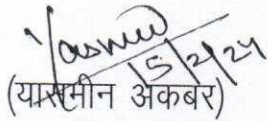 Yasmin
15/2/24
(यासमीन अकबर)